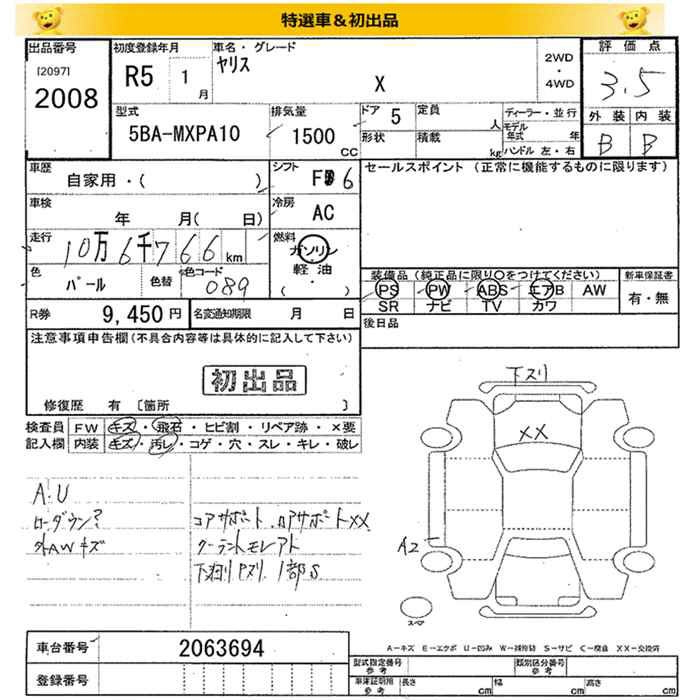 特選車＆初出品
出品番号
[2097]
2008
初度登録年月
R5 1月
車名・グレード
ヤリス
X
2WD
・
4WD
評価点
3.5
外装 内装
B B
型式
5BA-MXPA10
排気量
1500 CC
ドア 5
形状
定員 人
積載 kg
ディーラー・並行
モデル年式 年
ハンドル 左・右
車歴
自家用・( )
シフト
F 6
セールスポイント (正常に機能するものに限ります)
車検
年 月( 日)
冷房
AC
走行
10万6千766km
燃料
ガソリン
軽油
(・)
色
パール
色替
色コード
089
装備品 (純正品に限り○をつけてください)
PS PW ABS エアB AW
SR ナビ TV カワ
新車保証書
有・無
R券 9,450円
名変通知期限 月 日
後日品
注意事項申告欄(不具合内容等は具体的に記入して下さい)
初出品
修復歴 有 〔箇所 〕
検査員記入欄
FW キズ・飛石・ヒビ割・リペア跡・×要
内装 キズ・汚レ・コゲ・穴・スレ・キレ・破レ
A.U
ローダウン?
外AWキズ
コアサポート.ロアサポートXX
クーラントモレアト
下廻リPズリ 1部S
下ズリ
XX
A2
スペア
A－キズ E－エクボ U－凹ミ W－補修跡 S－サビ C－腐食 XX－交換済
車台番号 2063694
登録番号
型式指定番号
参考
類別区分番号
参考
車庫証明用
参考
長さ cm 幅 cm 高さ cm